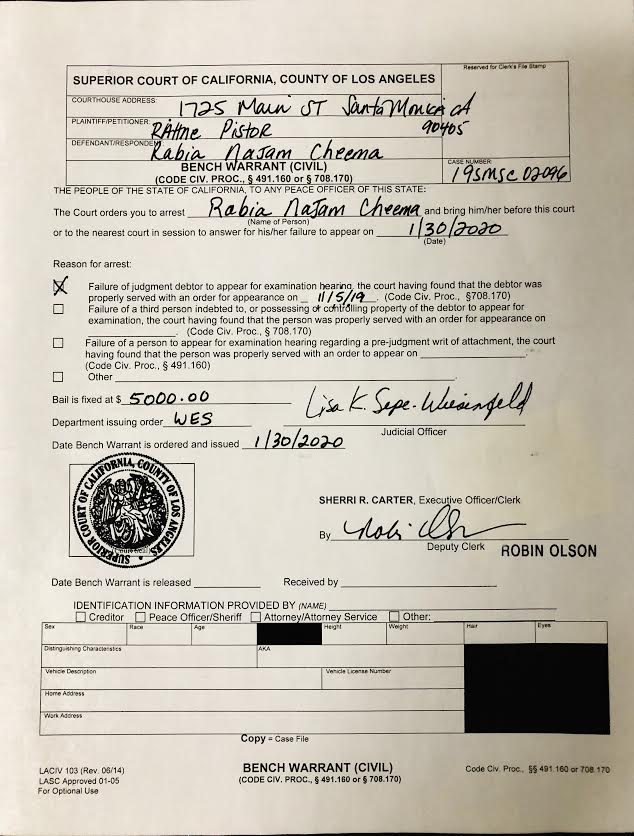 Reserved for Clerk's File Stamp
SUPERIOR COURT OF CALIFORNIA, COUNTY OF LOS ANGELES
COURTHOUSE ADDRESS: 1725 Main ST Santa Monica CA
90405
PLAINTIFF/PETITIONER: Pistor
DEFENDANT/RESPONDENT: Rabia Najam Cheema
BENCH WARRANT (CIVIL)
(CODE CIV. PROC., § 491.160 or § 708.170)
CASE NUMBER:
19SMSC 02096
THE PEOPLE OF THE STATE OF CALIFORNIA, TO ANY PEACE OFFICER OF THIS STATE:
The Court orders you to arrest Rabia Najam Cheema and bring him/her before this court
(Name of Person)
or to the nearest court in session to answer for his/her failure to appear on 1/30/2020
(Date)
Reason for arrest:
Failure of judgment debtor to appear for examination hearing, the court having found that the debtor was
properly served with an order for appearance on 11/5/19. (Code Civ. Proc., §708.170)
Failure of a third person indebted to, or possessing or controlling property of the debtor to appear for
examination, the court having found that the person was properly served with an order for appearance on
. (Code Civ. Proc., § 708.170)
Failure of a person to appear for examination hearing regarding a pre-judgment writ of attachment, the court
having found that the person was properly served with an order to appear on .
(Code Civ. Proc., § 491.160)
Other .
Bail is fixed at $ 5000.00
Lisa K. Sepe-Wiesenfeld
Department issuing order WES
Judicial Officer
Date Bench Warrant is ordered and issued 1/30/2020
SUPERIOR COURT OF CALIFORNIA, COUNTY OF LOS ANGELES
SHERRI R. CARTER, Executive Officer/Clerk
By
Deputy Clerk ROBIN OLSON
Date Bench Warrant is released Received by
IDENTIFICATION INFORMATION PROVIDED BY (NAME)
Creditor Peace Officer/Sheriff Attorney/Attorney Service Other:
Sex Race Age Height Weight Hair Eyes
Distinguishing Characteristics AKA
Vehicle Description Vehicle License Number
Home Address
Work Address
Copy = Case File
LACIV 103 (Rev. 06/14)
LASC Approved 01-05
For Optional Use
BENCH WARRANT (CIVIL)
(CODE CIV. PROC., § 491.160 or § 708.170)
Code Civ. Proc., §§ 491.160 or 708.170